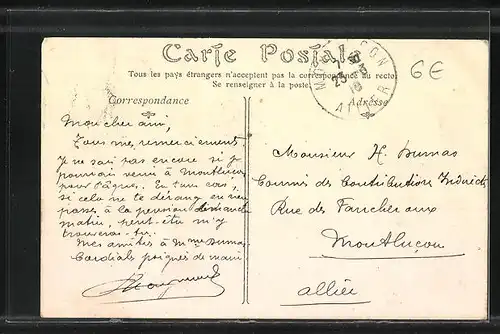 Carte Postale
Tous les pays étrangers n'acceptent pas la correspondance au recto.
Se renseigner à la poste
Correspondance
Adresse
6€
ALLIER
Mon cher ami,
Tous mes remerciements
Je ne sais pas encore si je
pourrais venir à Montluçon
pour Pâques. En tous cas,
si cela ne te dérange en rien
passes à la pension dimanche
matin, peut-être m'y
trouveras-tu.
Mes amitiés à Mme Dumas
Cordiales poignées de main
Monsieur H. Dumas
Commis des Contributions Indirectes
Rue des Faucheraux
Montluçon
Allier